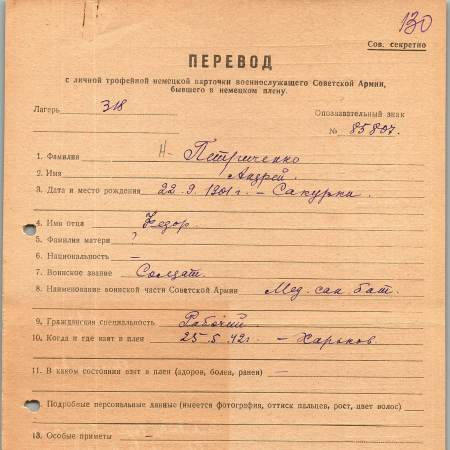 130
Сов. секретно
ПЕРЕВОД
с личной трофейной немецкой карточки военнослужащего Советской Армии,
бывшего в немецком плену.
Лагерь 318
Опознавательный знак
№ 85807.
1. Фамилия Н- Петриченко
2. Имя Андрей.
3. Дата и место рождения 22.9.1901г. – Сакурки
4. Имя отца Федор.
5. Фамилия матери ?
6. Национальность –
7. Воинское звание Солдат.
8. Наименование воинской части Советской Армии Мед. сан. бат.
9. Гражданская специальность Рабочий.
10. Когда и где взят в плен 25.5.42г. – Харьков
11. В каком состоянии взят в плен (здоров, болен, ранен) –
Подробные персональные данные (имеется фотография, оттиск пальцев, рост, цвет волос)
13. Особые приметы –